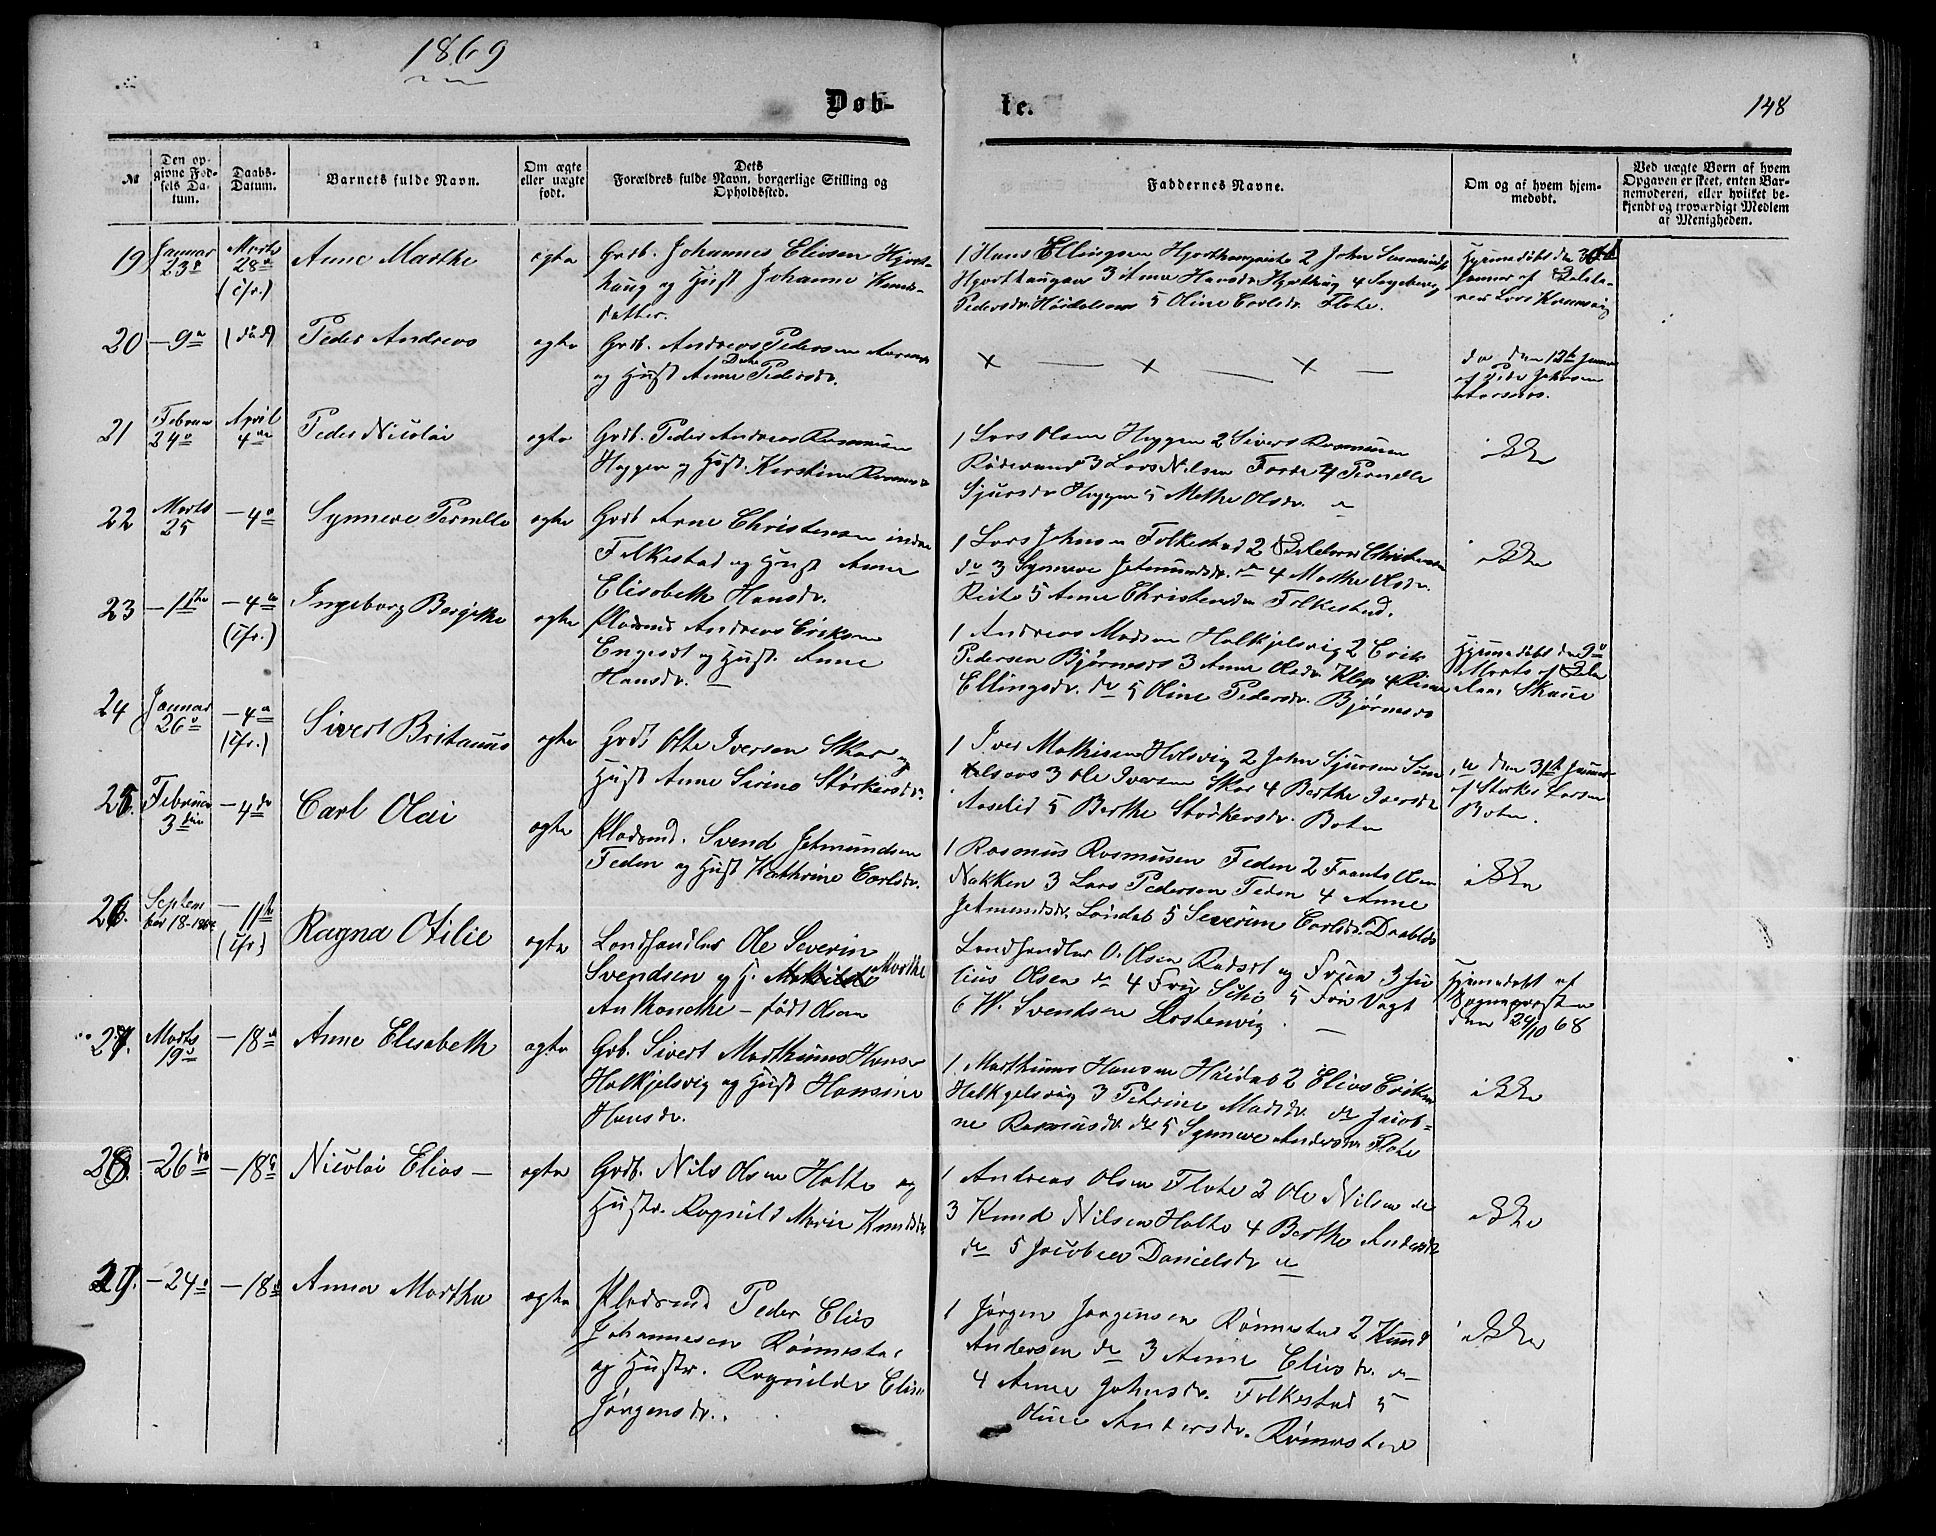 1869
Døb-
te.
148
№
Den op-
givne Fød-
sels Da-
tum.
Daabs-
Datum.
Barnets fulde Navn.
Om ægte
eller uægte
født.
Dets
Forældres fulde Navn, borgerlige Stilling og
Opholdssted.
Faddernes Navne.
Om og af hvem hjem-
medøbt.
Ved uægte Børn af hvem
Opgaven er skeet, enten Bar-
nemoderen, eller hvilket be-
kjendt og troværdigt Medlem
af Menigheden.
19
Januar
23
Marts
28
(ifr.)
Anne Marthe
ægte
Grdb. Johannes Eliesen Hjort-
haug og Hust Johanne Knuds-
datter.
1 Hans Ellingsen 2 John
3 Anne Hansdr Hjorthaug 4 Ingeborg
Pedersdr. 5 Oline Carlsdr. Flote.
Hjemmedøbt den
Januar af
Lars
20
9
(død)
Peder Andreas
ægte
Grdb. Andreas Pedersen
og Hust Anne Pedersdr.
× — × — × —
do den 12te Januar
af Peder Johnsen
21
Februar
24
April
4
Peder Nicolai
ægte
Grdb. Peder Andreas Rasmusen
Heggen og Hust. Kirstine
1 Lars Olsen Heggen 2 Sivert Rasmusen
3 Lars Nilsen Förde 4 Pernelle
Sjursdr Heggen 5 Methe Olsdr. do
ikke
22
Marts
25
4
Synneve Pernelle
ægte
Grdb Arne Christensen indre
Folkestad og Hust Anne
Elisabeth Hansdr.
1 Lars Johnsen Folkestad 2 Christensen
do 3 Synneve Jetmundsdr. do 4 Marthe Olsdr.
Reite 5 Anne Christensdr Folkestad.
ikke
23
1ste
4
(ifr.)
Ingeborg Bergithe
ægte
Pladsmd Andreas Eriksen
Engeset og Hust. Anne
Hansdr.
1 Andreas Madsen Halkjelsvig 2 Erik
Pedersen Bjørneset 3 Anne Olsdr. 4
Ellingsdr. do 5 Oline Pedersdr. Bjørnesæt
Hjemmedøbt den 9
Marts af
24
Januar
26
4
(ifr.)
Sivert Britanus
ægte
Grdb Otte Iversen Skar og
Hust Anne Sirine Størkersdr.
1 Iver Mathisen Helsvig 2 John Sjursen
3 Ole Iversen Skar 4 Berthe Iversdr
Aaselid 5 Berthe Størkersdr. Botn
do den 31te Januar
af Størker Larsen
Botn.
25.
Februar
3die
4de
Carl Olai
ægte
Pladsmd. Svend Jetmundsen
Feden og Hust Kathrine Carlsdr.
1 Rasmus Rasmusen Feden 2 Frants Olsen
Nakken 3 Lars Pedersen Feden 4 Anne
Jetmundsdr. Løndal 5 Severine Carlsdr.
ikke
26.
Septem
ber 18-1868
11te
(ifr.)
Ragna Otilie
ægte
Landhandler Ole Severin
Svendsen og H. Marthe
Anthonette — født Olsen
Landhandler O. Olsen Radset og Frue 3 Ju
lius Olsen do 4 Fru 5 Fru Vogt
6 W. Svendsen
Hjemmedøbt af
Sognepresten
den 24/10 68
27.
Marts
19
18
Anne Elisabeth
ægte
Grb. Sivert Marthinus Hansen
Halkjelsvig og Hust Hansine
Hansdr.
1 Marthinus Hansen 2 Elias Eriksen
Halkjelsvig 3 Petrine Madsdr. do 4 Jacob-
ine Rasmusdr do 5 Synneve Andersdr Flote
ikke
28.
26
18
Nicolai Elias —
ægte
Grdb. Nils Olsen Holte og
Hustr. Ragnild Marie Knudsdr
1 Andreas Olsen Flote 2 Ole Nilsen do
3 Knud Nilsen Holte 4 Berthe Andersdr
do 5 Jacobea Danielsdr do
ikke
29.
24
18
Anna Marthe
ægte
Pladsmd Peder Elias
Johannesen Rønnestad
og Hustr. Ragnilde Elise
Jørgensdr.
1 Jørgen Jørgensen Rønnestad 2 Knud
Andersen do 3 Anne Eliasdr. do
4 Anne Johnsdr. Folkestad 5
Oline Andersdr. Rønnestad
ikke